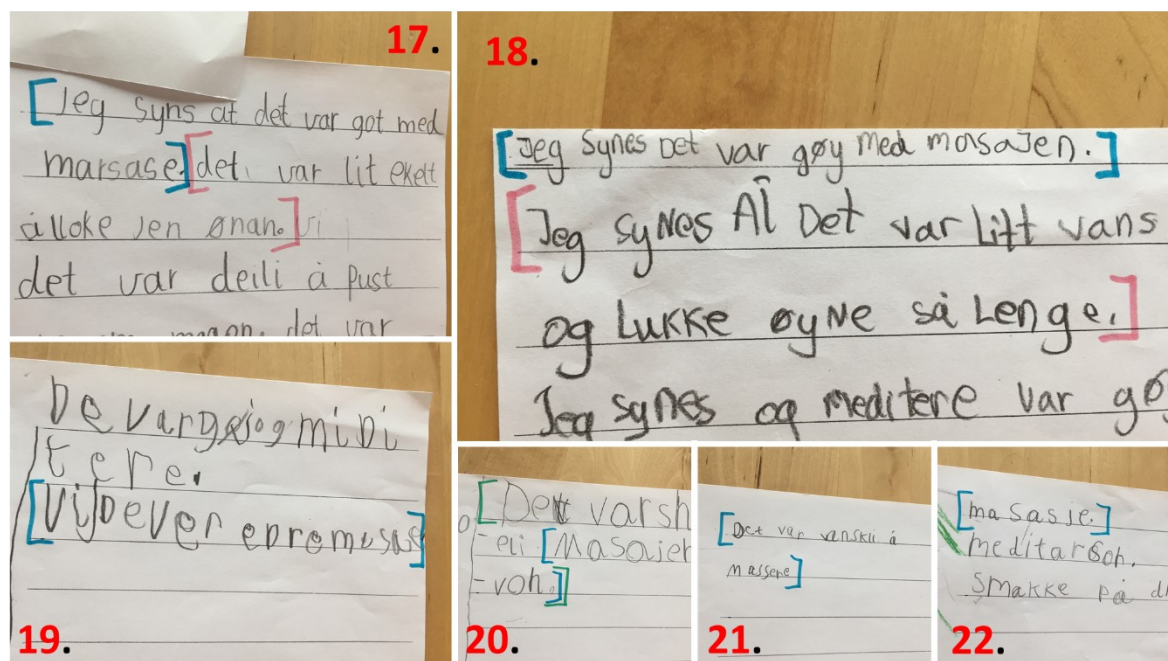 17.
Jeg syns at det var got med
marsase. det. var lit ekelt
å lloke jen ønan. Vi
det var deili å pust
magan. det var
18.
Jeg synes Det var gøy med masaJen.
Jeg syNes AT Det var Litt vans
og LuKKe øyNe så Lenge.
Jeg syNes og meditere var gø
19.
De var gøi og miDi
tere.
Vi
20.
Dett varsh
- eli Masajer
- voh.
21.
Det var vanskli å
massere
22.
masasje.
meditarsch.
SmaKKe På d